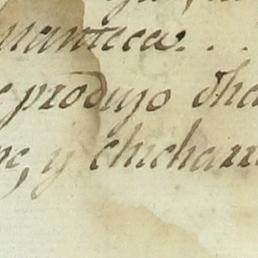 manteca...
produjo dha
y chicharr